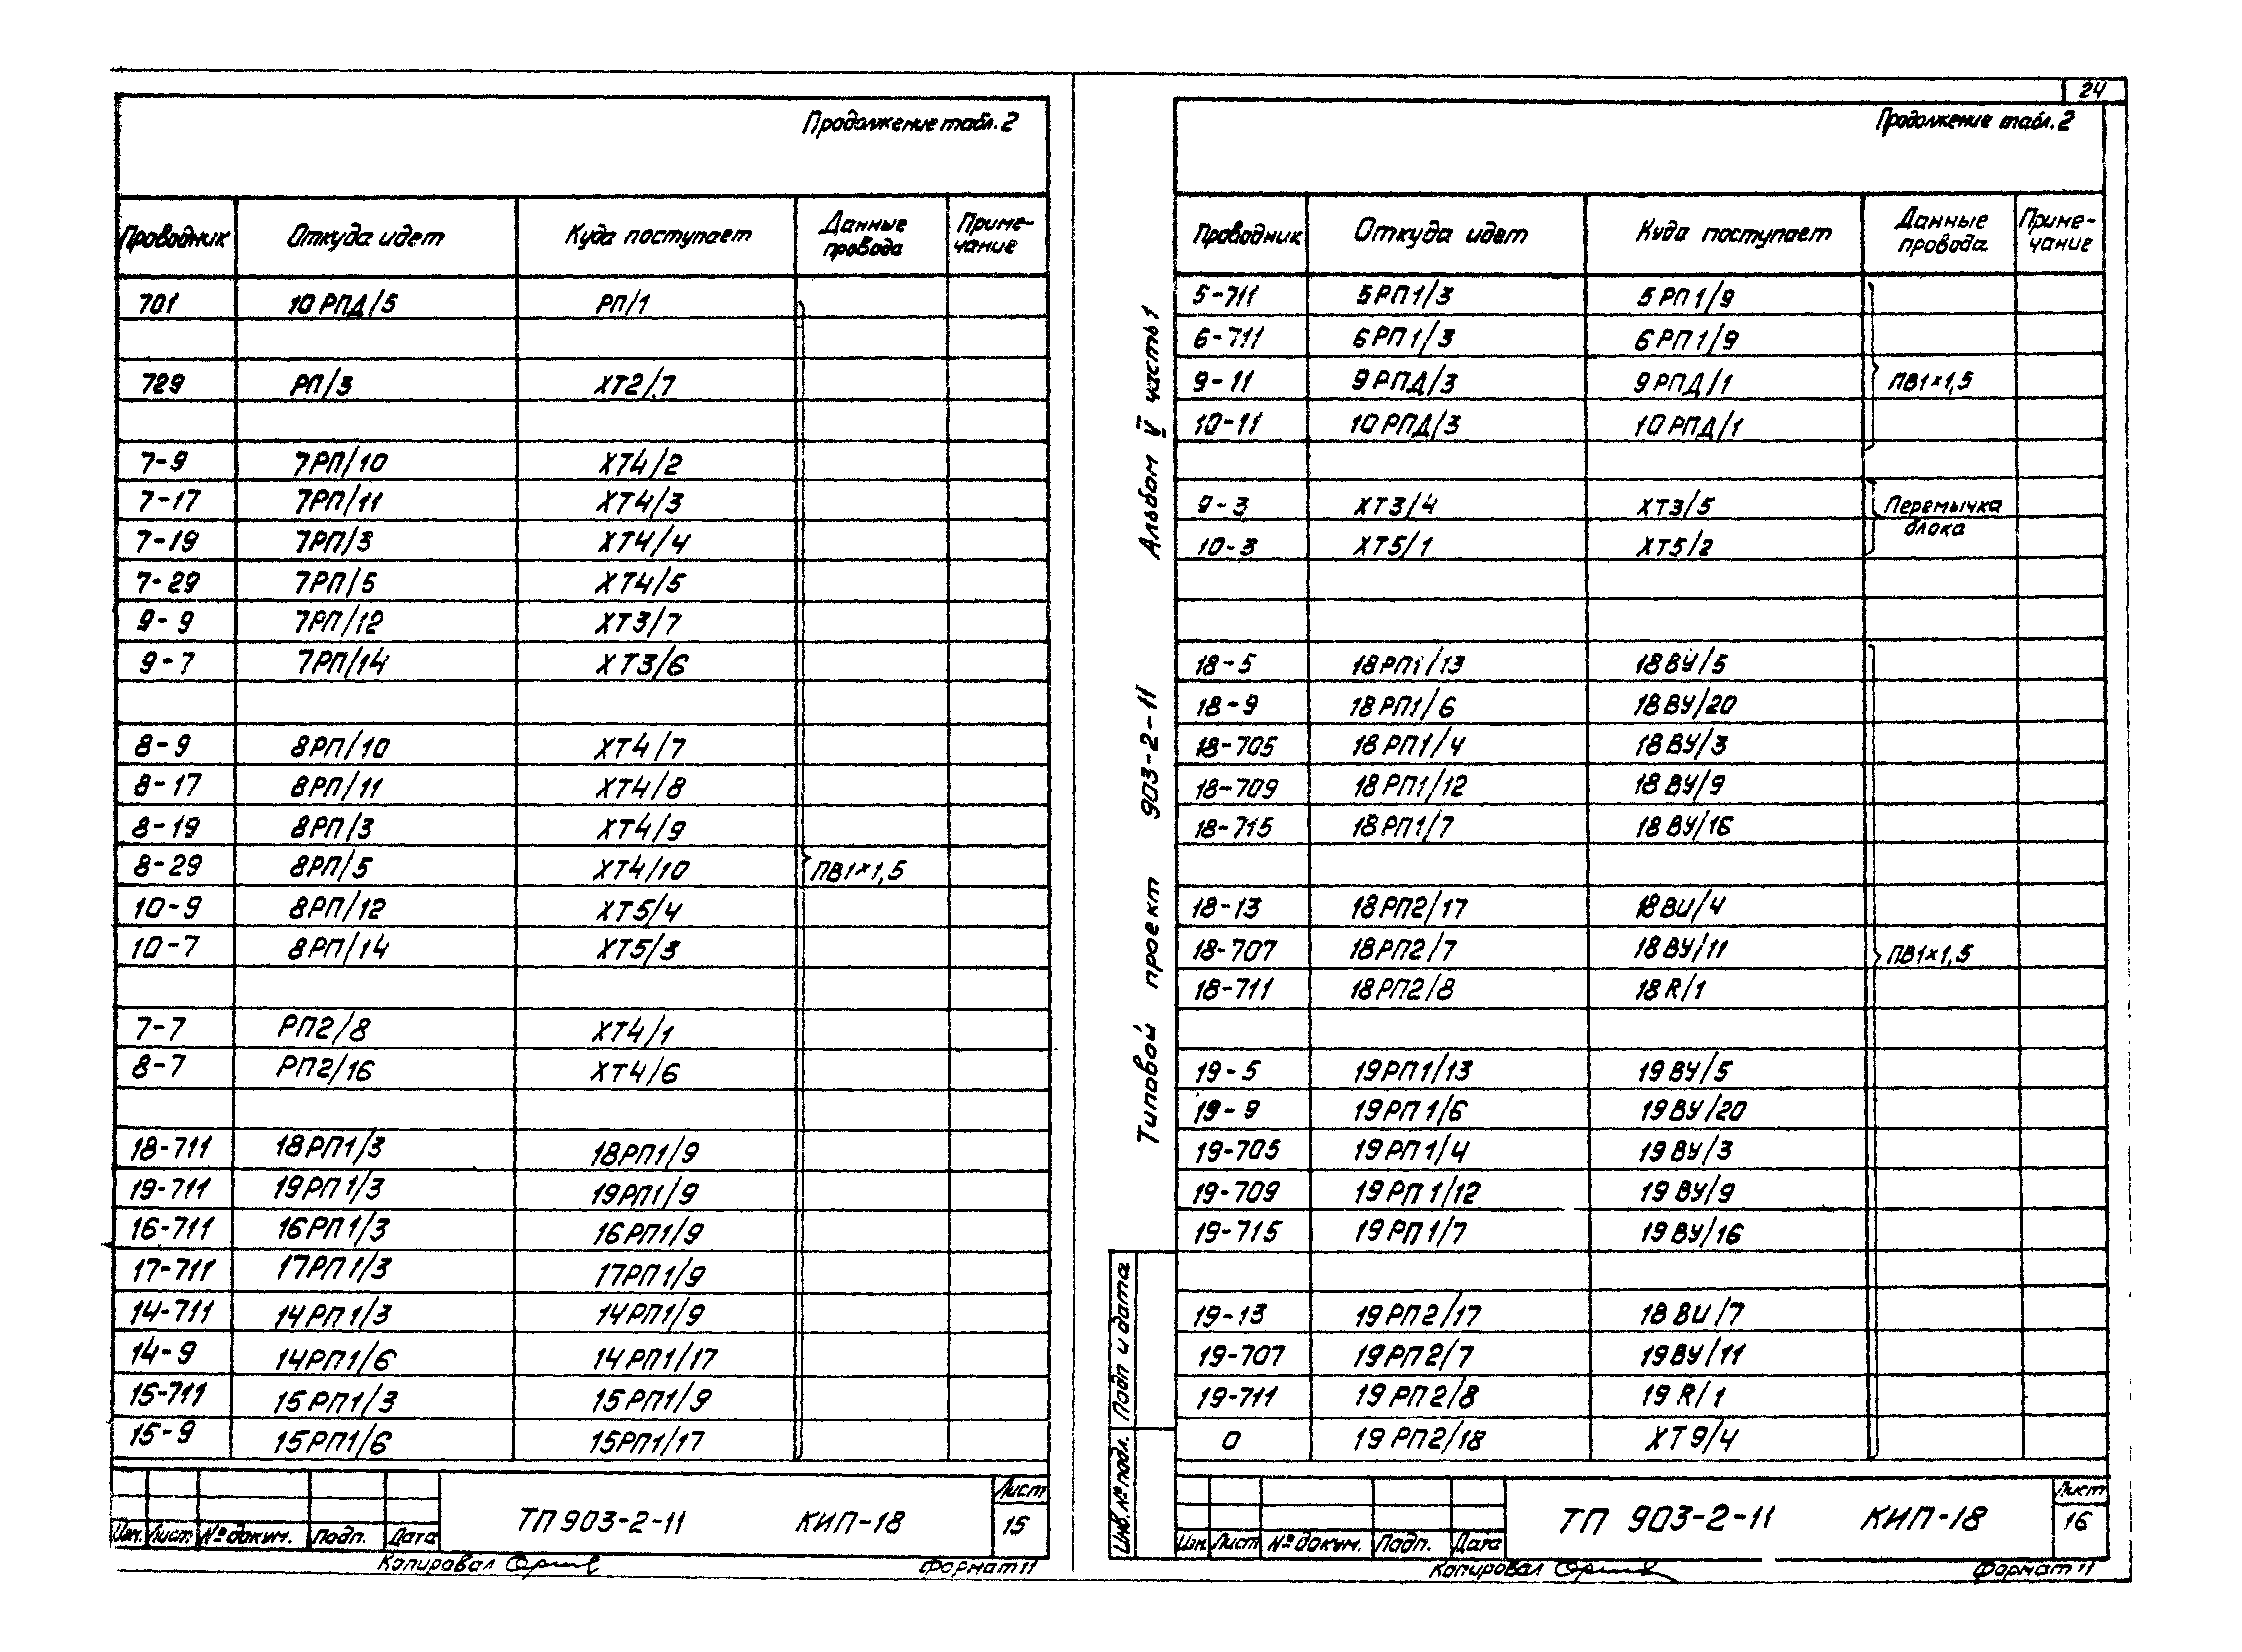 Продолжение табл. 2
Проводник Откуда идет Куда поступает Данные провода Приме-чание
701 10РПД/5 РП/1
729 РП/3 ХТ2/7
7-9 7РП/10 ХТ4/2
7-17 7РП/11 ХТ4/3
7-19 7РП/3 ХТ4/4
7-29 7РП/5 ХТ4/5
9-9 7РП/12 ХТ3/7
9-7 7РП/14 ХТ3/6
8-9 8РП/10 ХТ4/7
8-17 8РП/11 ХТ4/8
8-19 8РП/3 ХТ4/9
8-29 8РП/5 ХТ4/10 ПВ1×1,5
10-9 8РП/12 ХТ5/4
10-7 8РП/14 ХТ5/3
7-7 РП2/8 ХТ4/1
8-7 РП2/16 ХТ4/6
18-711 18РП1/3 18РП1/9
19-711 19РП1/3 19РП1/9
16-711 16РП1/3 16РП1/9
17-711 17РП1/3 17РП1/9
14-711 14РП1/3 14РП1/9
14-9 14РП1/6 14РП1/17
15-711 15РП1/3 15РП1/9
15-9 15РП1/6 15РП1/17
Изм. Лист № докум. Подп. Дата
ТП 903-2-11 КИП-18
Лист
15
Копировал
Формат 11
24
Продолжение табл. 2
Проводник Откуда идет Куда поступает Данные провода Приме-чание
5-711 5РП1/3 5РП1/9
6-711 6РП1/3 6РП1/9
9-11 9РПД/3 9РПД/1 ПВ1×1,5
10-11 10РПД/3 10РПД/1
9-3 ХТ3/4 ХТ3/5 Перемычка
блока
10-3 ХТ5/1 ХТ5/2
18-5 18РП1/13 18ВУ/5
18-9 18РП1/6 18ВУ/20
18-705 18РП1/4 18ВУ/3
18-709 18РП1/12 18ВУ/9
18-715 18РП1/7 18ВУ/16
18-13 18РП2/17 18ВИ/4
18-707 18РП2/7 18ВУ/11 ПВ1×1,5
18-711 18РП2/8 18R/1
19-5 19РП1/13 19ВУ/5
19-9 19РП1/6 19ВУ/20
19-705 19РП1/4 19ВУ/3
19-709 19РП1/12 19ВУ/9
19-715 19РП1/7 19ВУ/16
19-13 19РП2/17 18ВИ/7
19-707 19РП2/7 19ВУ/11
19-711 19РП2/8 19R/1
0 19РП2/18 ХТ9/4
Типовой проект 903-2-11 Альбом V часть 1
Инв. № подл. Подп и дата
Изм. Лист № докум. Подп. Дата
ТП 903-2-11 КИП-18
Лист
16
Копировал
Формат 11